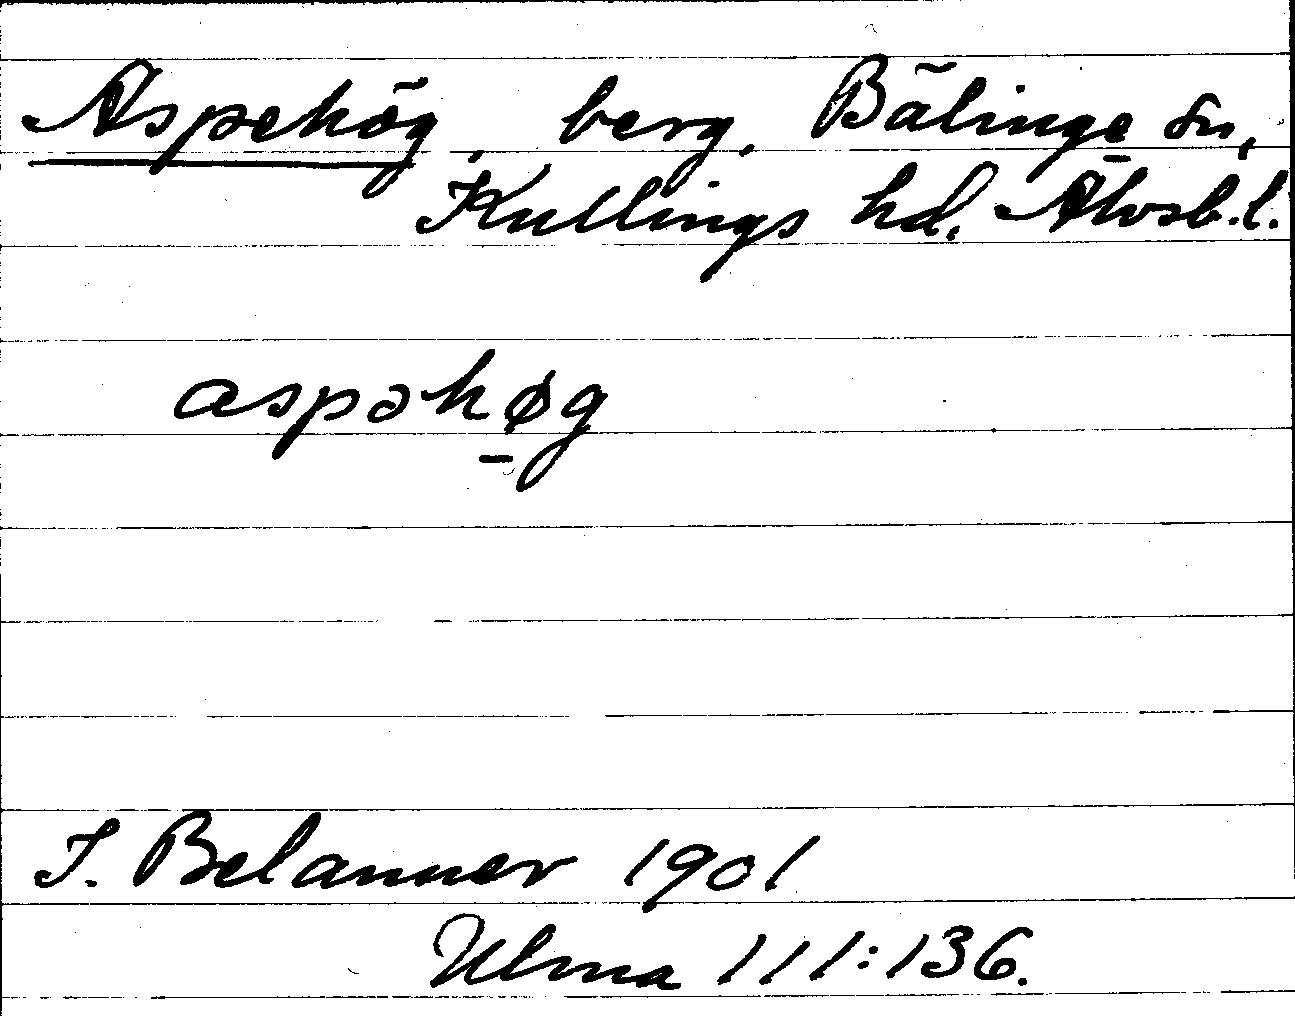 Aspehög, berg, Bälinge sn,
Kullings hd. Älvsb.l.
aspəhøg
I. Belanner 1901
Ulma 111:136.